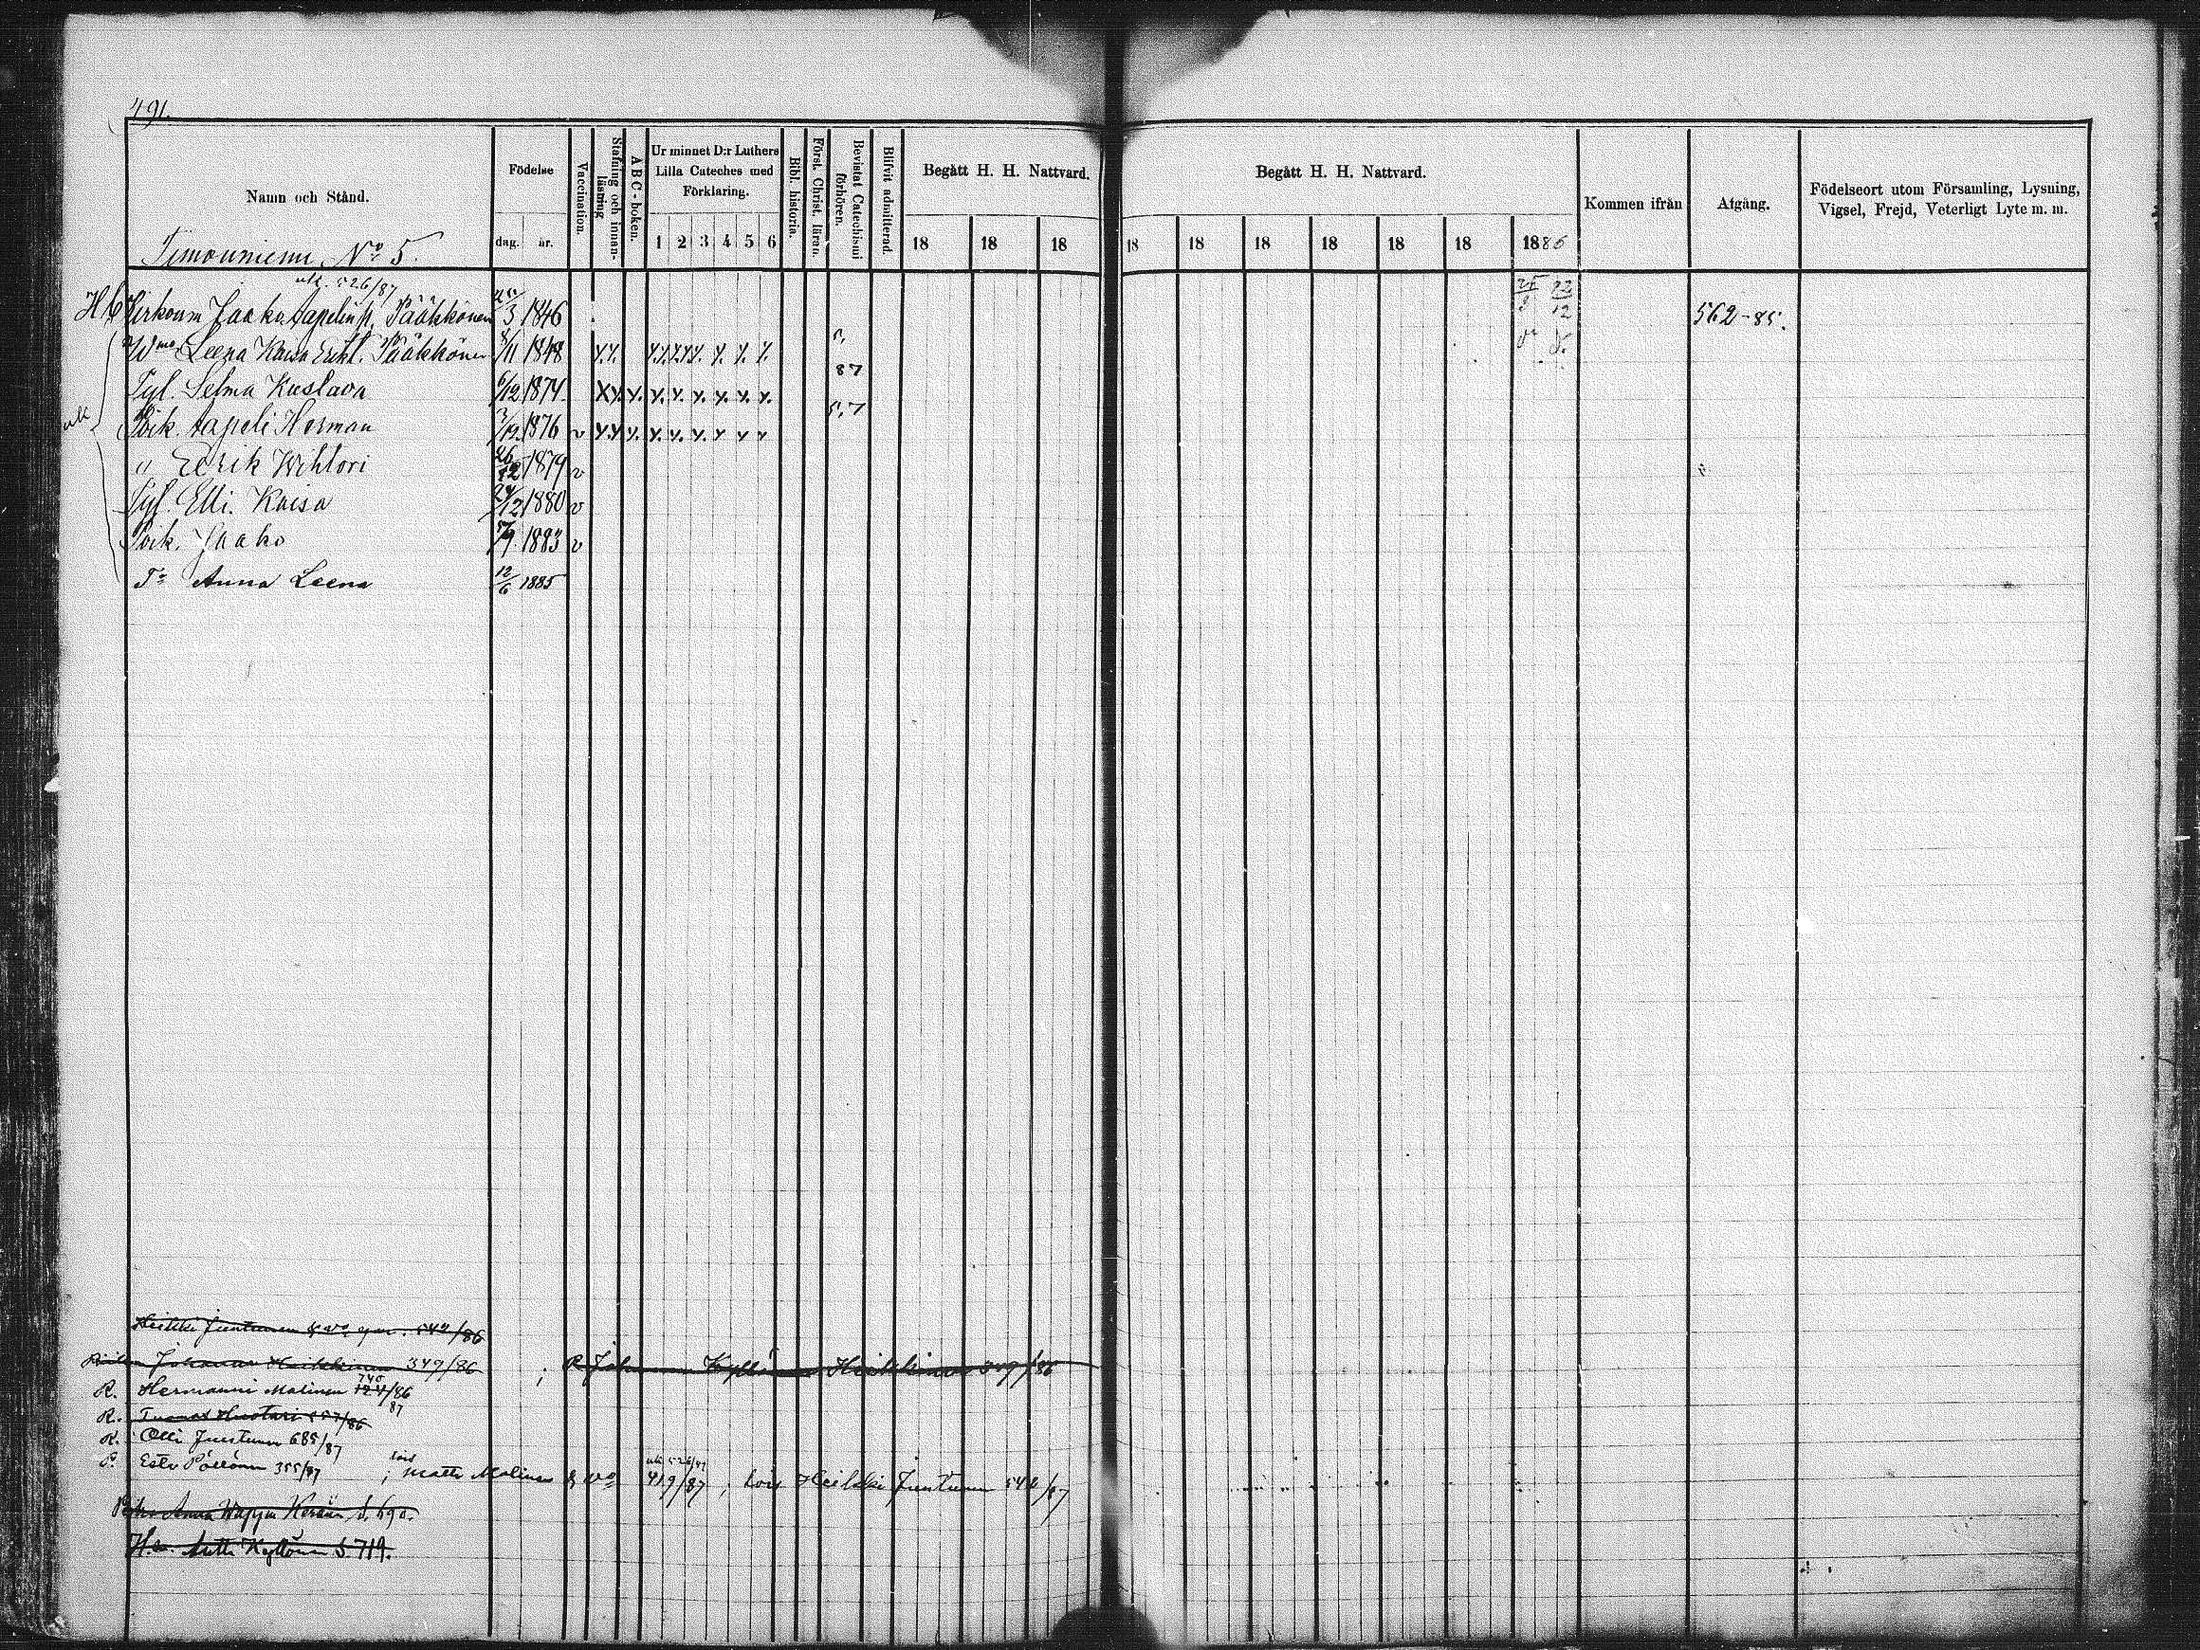 491.
Namn och Stånd.
Födelse
dag. år.
Vaccination.
Stafning och innan-läsning
ABC-boken.
Ur minnet D:r Luthers Lilla Cateches med Förklaring.
1 2 3 4 5 6
Bibl. historia.
Först. Christ. läran.
Bevistat Catechismi förhören.
Blifvit admitterad.
Begått H. H. Nattvard.
18 18 18
Begått H. H. Nattvard.
18 18 18 18 18 18 1886
Kommen ifrån
Afgång.
Födelseort utom Församling, Lysning, Vigsel, Frejd, Veterligt Lyte m. m.
Timoniemi No 5.
ulk. 526/87
Jaako Aapelin p. Pääkkönen 3 1846 562-85.
Wmo Leena Kaisa Erikt. Pääkkönen 8/11 1848
87
Tyt. Selma Kustava 6/12 1874.
5,7
Poik. Aapeli Herman 3/12 1876 v
" Eerik Wihtori 26/12 1879 v
Tyt. Elli Kaisa 24/12 1880 v
Poik. Jaako 1883 v
Tr Anna Leena 12/6 1885
ulk
Heikki Juntunen & wo 542/86
Johanna Heikkinen 349/86 ; R Johanna Heikkinen 349/86
R. Hermanni Malinen 740/86
87
R. Huotari 557/86
R. Olli Juntunen 685/87
P. 355/87 ; lois Matti Malinen & wo 419/87 ulk 526/87 ; lois Heikki Juntunen 542/87
Anna S. 690.
Antti Kyllönen S 719.